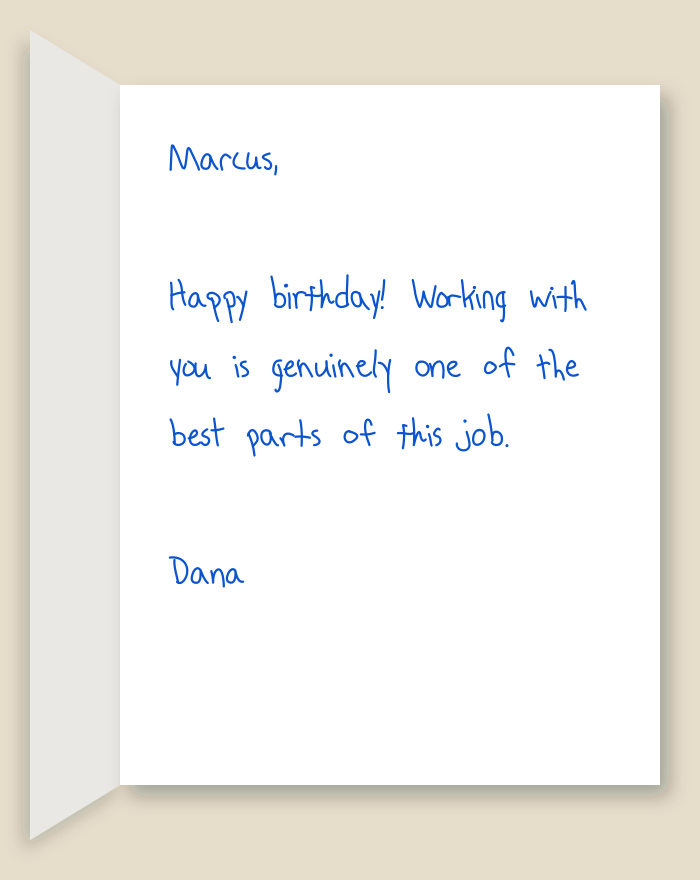 Marcus,
Happy birthday! Working with
you is genuinely one of the
best parts of this job.
Dana